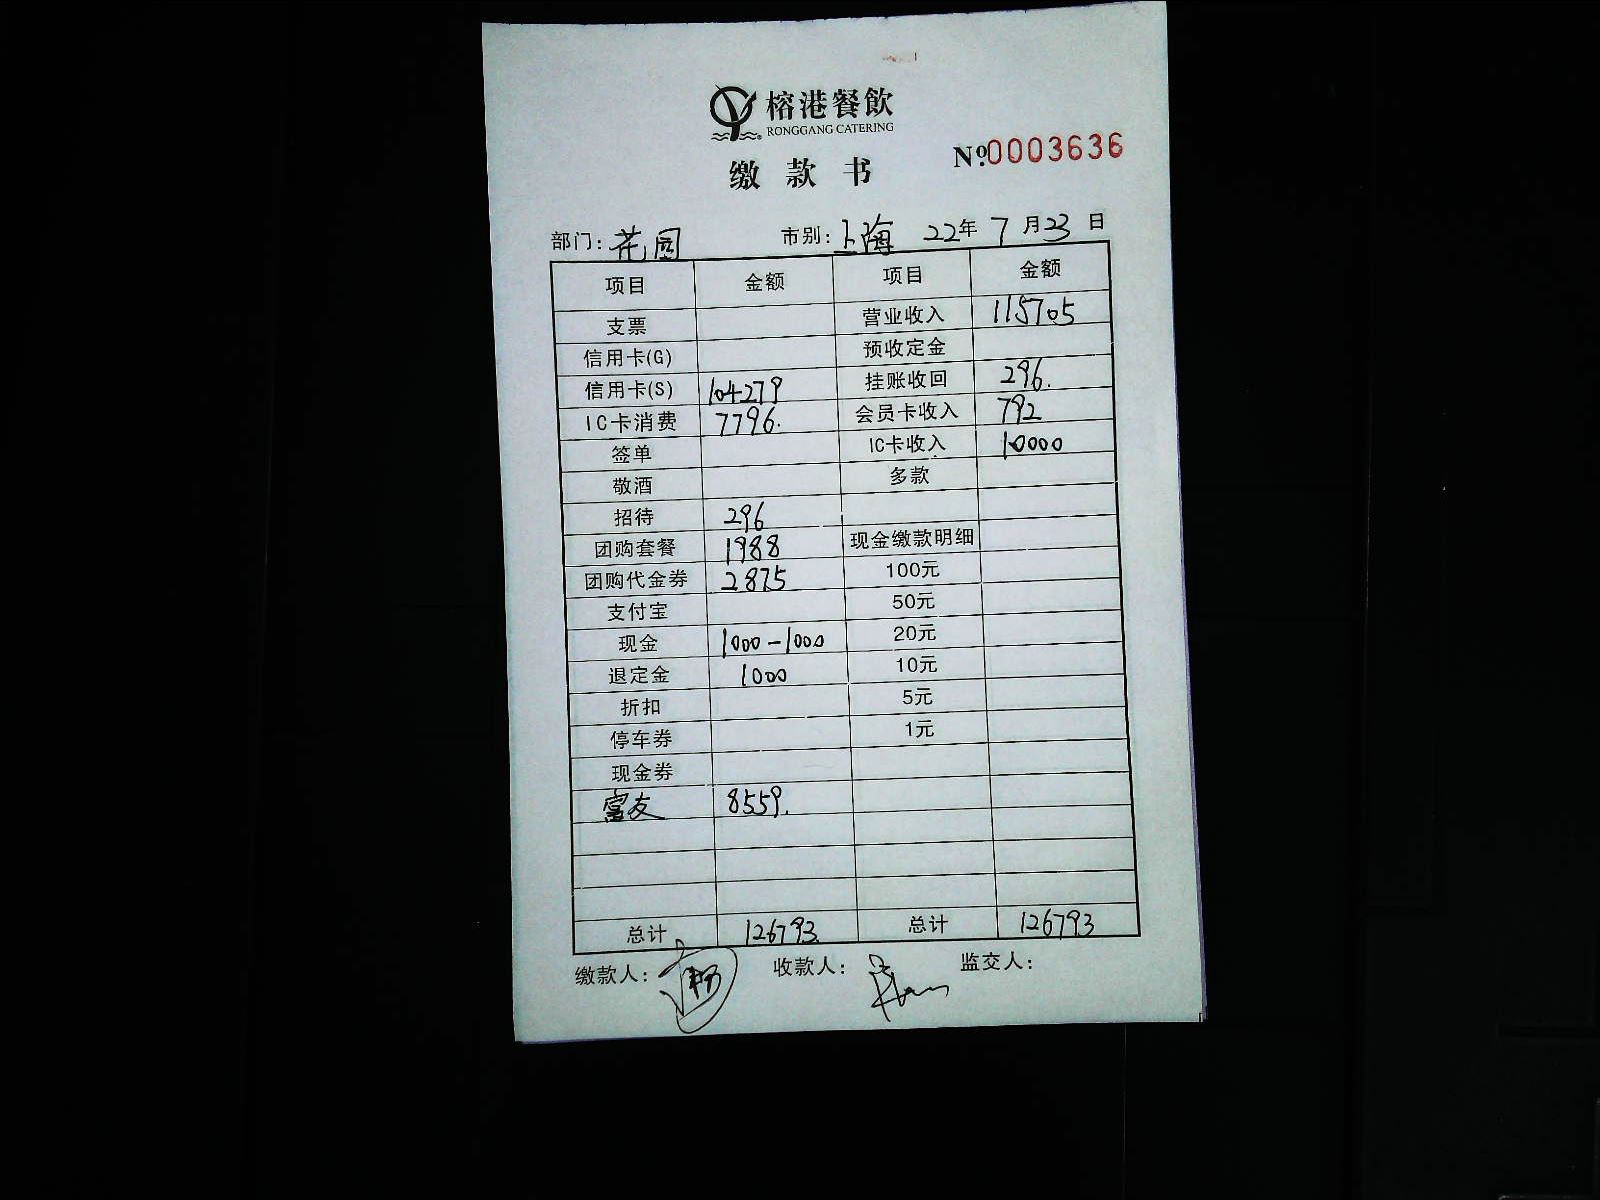 榕港餐飲
RONGGANG CATERING
缴款书
№0003636
部门：花园 市别：上海 22年7月23日
项目 金额 项目 金额
支票 营业收入 115705
信用卡(G) 预收定金
信用卡(S) 104279 挂账收回 296.
IC卡消费 7796. 会员卡收入 792
签单 IC卡收入 10000
敬酒 多款
招待 296
团购套餐 1988 现金缴款明细
团购代金券 2875 100元
支付宝 50元
现金 1000-1000 20元
退定金 1000 10元
折扣 5元
停车券 1元
现金券
富友 8559.
总计 126793. 总计 126793
缴款人： 收款人： 监交人：